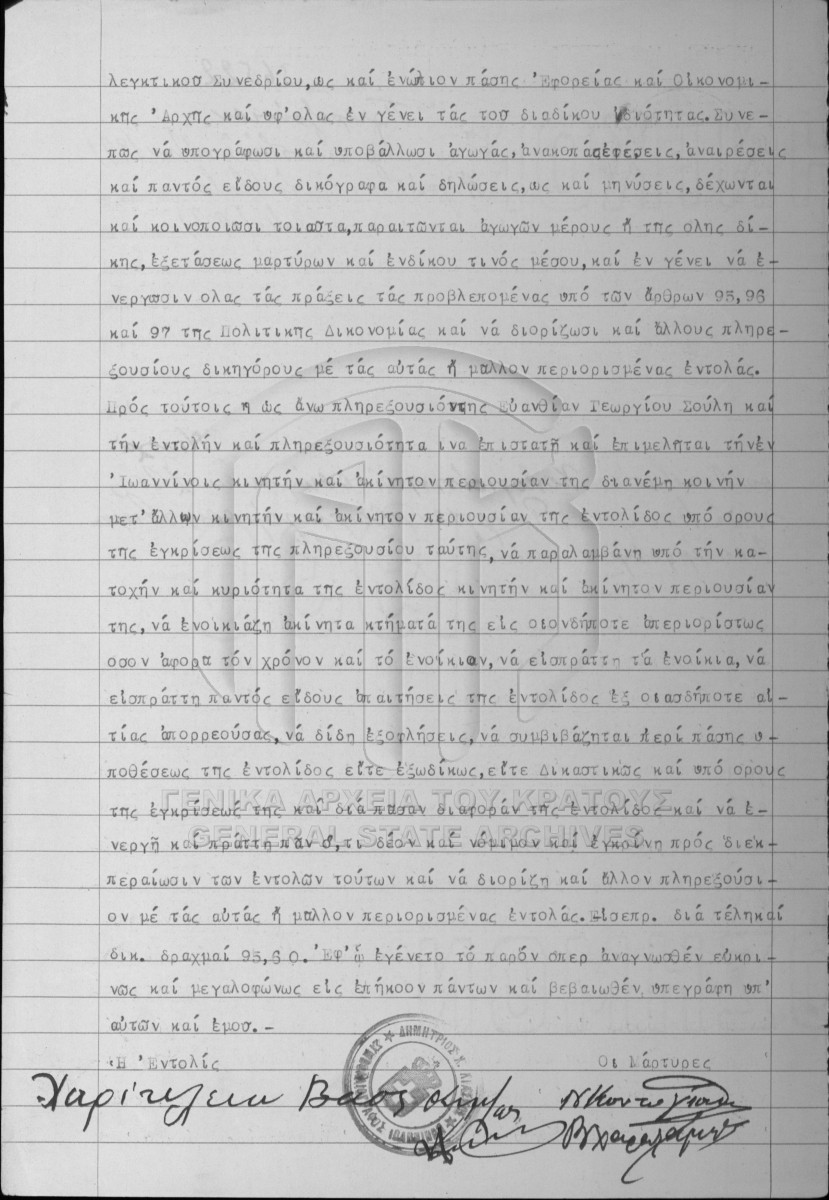 λεγκτικοσ Συνεδρίου,ως καί ἐνώπιον πάσης Ἐφορείας καί Οἰκονομι-
κης Ἀρχῆς καί υφ'ολας ἐν γένει τάς τοσ διαδίκου ἰδιότητας.Συνε-
πως νά υπογράφωσι καί υποβάλλωσι ἀγωγάς,ἀνακοπάςἐφέσεις,ἀναιρέσεις
καί παντός εἴδους δικόγραφα καί δηλώσεις,ως καί μηνύσεις,δέχωνται
καί κοινοποιωσι τοιαστα,παραιτῶνται ἀγωγῶν μέρους ἤ της ολης δί-
κης,ἐξετάσεως μαρτύρων καί ἐνδίκου τινός μέσου,καί ἐν γένει νά ἐ-
νεργωσιν ολας τάς πράξεις τάς προβλεπομένας υπό τῶν ἄρθρων 95,96
καί 97 της Πολιτικης Δικονομίας καί νά διορίζωσι καί ἄλλους πληρε-
ξουσίους δικηγόρους μέ τάς αὐτάς ἤ μαλλον περιορισμένας ἐντολάς.
Πρός τούτοις η ὡς ἄνω πληρεξουσιόντης Εὐανθίαν Γεωργίου Σούλη καί
τήν ἐντολήν καί πληρεξουσιότητα ινα ἐπιστατῆ καί ἐπιμελῆται τήνἐν
Ἰωαννίνοις κινητήν καί ἀκίνητον περιουσίαν της διανέμη κοινήν
μετ'ἄλλων κινητήν καί ἀκίνητον περιουσίαν της ἐντολίδος υπό ορους
της ἐγκρίσεως της πληρεξουσίου ταύτης,νά παραλαμβάνη υπό τήν κα-
τοχήν καί κυριότητα της ἐντολίδος κινητήν καί ἀκίνητον περιουσίαν
της,νά ἐνοικιάζη ἀκίνητα κτήματά της εἰς οιονδήποτε ἀπεριορίστως
οσον ἀφορα τόν χρόνον καί τό ἐνοίκιον,νά εἰσπράττη τά ἐνοίκια,νά
εἰσπράττη παντός εἴδους ἀπαιτήσεις της ἐντολίδος ἐξ οιασδήποτε αἰ-
τίας ἀπορρεούσας,νά δίδη ἐξοφλήσεις,νά συμβιβάζηται περί πάσης υ-
ποθέσεως της ἐντολίδος εἴτε ἐξωδίκως,εἴτε Δικαστικως καί υπό ορους
της ἐγκρίσεώς της καί διά πασαν διαφοράν της ἐντολίδος καί νά ἐ-
νεργῆ καί πράττη παν ὅ,τι δέον καί νόμιμον καί ἐγκρίνη πρός διεκ-
περαίωσιν των ἐντολῶν τούτων καί νά διορίζη καί ἄλλον πληρεξούσι-
ον μέ τάς αὐτάς ἤ μαλλον περιορισμένας ἐντολάς.Εἰσεπρ. διά τέληκαί
δικ. δραχμαί 95,60.Ἐφ'ᾧ ἐγένετο τό παρόν οπερ ἀναγνωσθέν εὐκρι-
νως καί μεγαλοφώνως εἰς ἐπήκοον πάντων καί βεβαιωθέν υπεγράφη υπ'
αὐτῶν καί ἐμοσ.-
Η Ἐντολίς Οι Μάρτυρες
ΓΕΝΙΚΑ ΑΡΧΕΙΑ ΤΟΥ ΚΡΑΤΟΥΣ
GENERAL STATE ARCHIVES